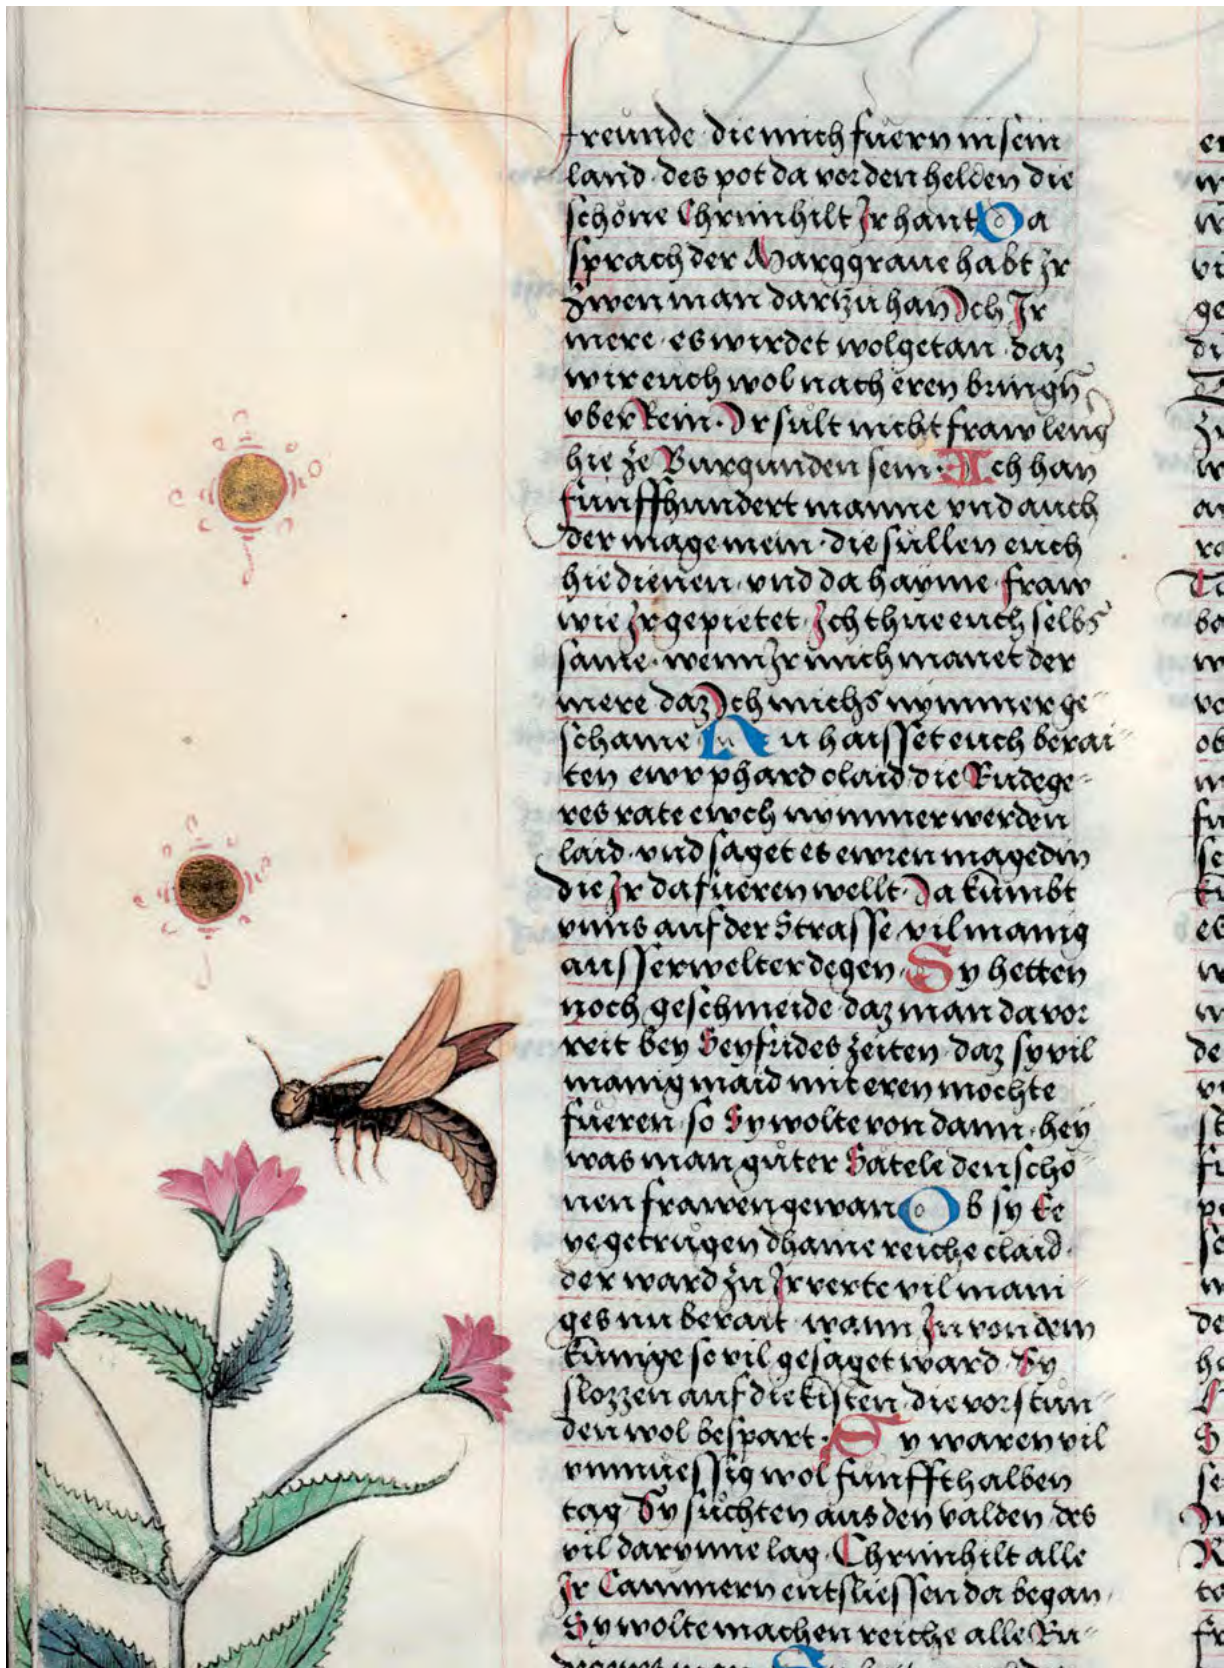 freunde · die mich füern in sein
land · des pot da vor den helden die
schöne Chrimhilt Ir hant Da
sprach der Marggraue habt Ir
zwen man dartzu han Ich Ir
mere · es wirdet wol getan · daz
wir euch wol nach eren bringn
vber Rein · Ir sült nicht fraw leng
hie ze Burgunden sein · Ich han
fünffhundert manne vnd auch
der mage mein · die süllen euch
hie dienen · vnd da hayme · fraw
wie Ir gepietet · Ich thue euch selbs
same · wenn Ir mich manet der
mere daz Ich michs nymmer ge-
schame Nu haisset euch berai-
ten ewr phard claid die Rudege-
res rate ewch nymmer werden
laid · vnd saget es ewren magedin
die Ir da füeren wellt · Da kumbt
vnns auf der Strasse · vil manig
ausserwelter degen · Sy hetten
noch geschmeide · daz man da vor
reit bey Seyfrides zeiten · daz sy vil
manig maid mit eren mochte
füeren · so Sy wolte von dann · hey
was man güter Sätele den schö-
nen frawen gewan Ob sy Ee
ye getrůgen dhaine reiche claid ·
der ward zu Ir verte vil mani-
ges nu berait · wann In von dem
künige so vil gesaget ward · Sy
slozzen auf die kisten · die vor stun-
den wol bespart · Sy waren vil
vnmüessig wol fünffthalben
tag · Sy sůchten aus den valden · des
vil darynne lag · Chrimhilt alle
Ir Cammern entsliessen da began ·
Sy wolte machen reiche alle Rü-